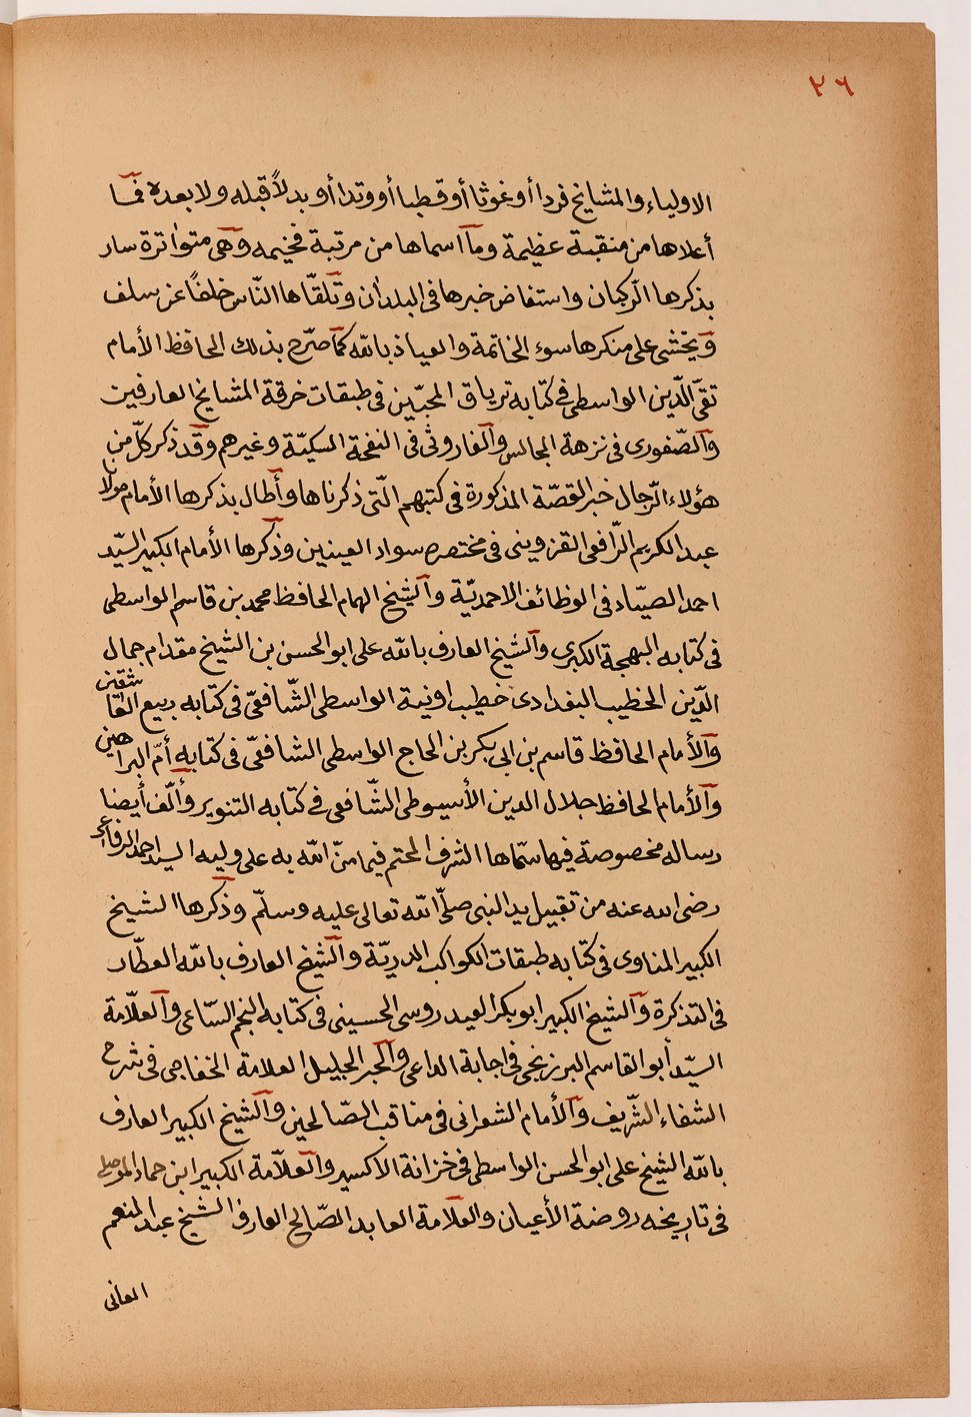 ٣٦
الاولياء والمشايخ فردا أو غوثا أو قطبا أو وتدا أو بدلاً قبله ولا بعده فما
أعلاها من منقبة عظيمة وما اسماها من مرتبة فخيمه وهى متواترة سار
بذكرها الركبان واستفاض خبرها فى البلدان وتلقّاها النّاس خلفًا عن سلف
ويخشى على منكرها سوء الخاتمة والعياذ بالله كما صرّح بذلك الحافظ الأمام
تقىّ الدّين الواسطى فى كتابه ترياق المحبّين فى طبقات خرقة المشايخ العارفين
والصّفورى فى نزهة المجالس والفاروثى فى النفحة المسكيّة وغيرهم وقد ذكر كلّ من
هؤلاء الرّجال خبر القصّة المذكورة فى كتبهم الّتى ذكرناها وأطال بذكرها الأمام مولانا
عبد الكريم الرّافعى القزوينى فى مختصره سواد العينين وذكرها الأمام الكبير السّيد
احمد الصيّاد فى الوظائف الاحمديّة والشيخ الهمام الحافظ محمد بن قاسم الواسطى
فى كتابه البهجة الكبرى والشيخ العارف بالله على ابو الحسن بن الشيخ مقدام جمال
الدّين الخطيب البغدادى خطيب اونية الواسطى الشّافعىّ فى كتابه ربيع العاشقين
والأمام الحافظ قاسم بن ابى بكر بن الحاج الواسطى الشافعىّ فى كتابه أمّ البراهين
والأمام الحافظ جلال الدين الأسيوطى الشّافعى فى كتابه التنوير وألّف أيضا
رساله مخصوصة فيها سمّاها الشرف المحتم فيما منّ الله به على وليه السيد احمد الرفاعى
رضى الله عنه من تقبيل يد النبى صلّى الله تعالى عليه وسلّم وذكرها الشيخ
الكبير المناوى فى كتابه طبقات الكواكب الدريّة والشيخ العارف بالله العطّار
فى التذكرة والشيخ الكبير ابو بكر العيدروسى الحسينى فى كتابه النجم السّاعى والعلّامة
السيّد أبو القاسم البرزنجى فى اجابة الداعى والحبر الجليل العلامة الخفاجى فى شرح
الشفاء الشّريف والأمام الشعرانى فى مناقب الصّالحين والشيخ الكبير العارف
بالله الشيخ على ابو الحسن الواسطى فى خزانة الاكسير والعلّامة الكبير ابن حماد الموصلى
فى تاريخه روضة الأعيان والعلّامة العابد الصّالح العارف الشيخ عبد المنعم
العانى